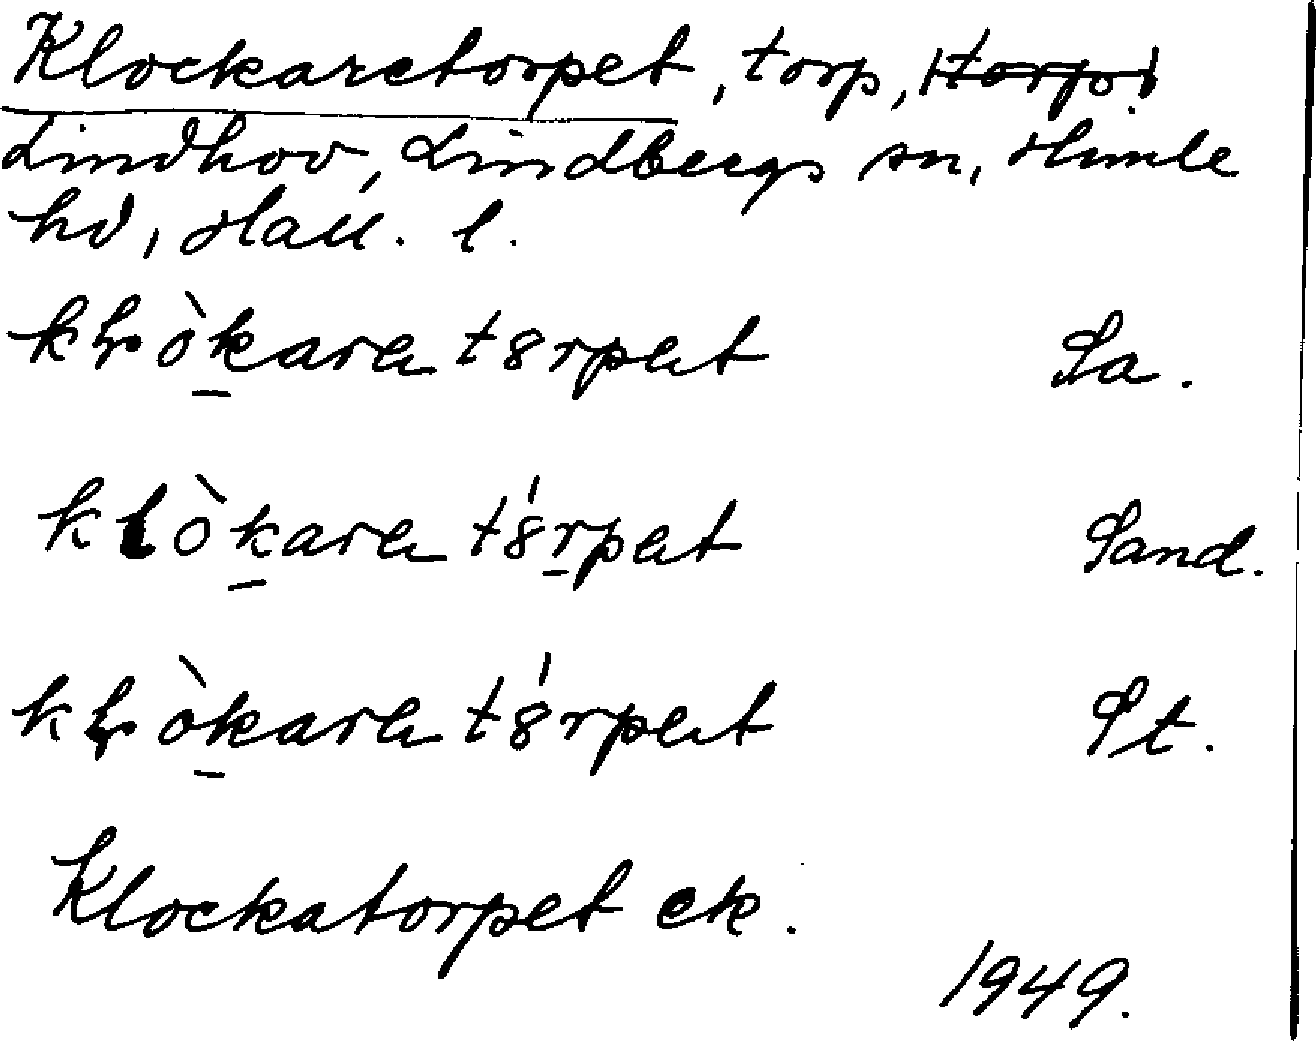 Klockaretorpet, torp,
Lindhov, Lindbergs sn, Himle
hd, Hall. l.
kḷòkara tȣrpat Sa.
klòkara tȣ́rpat Sand.
kḷòkara tȣ́rpat St.
Klockatorpet ek.
1949.